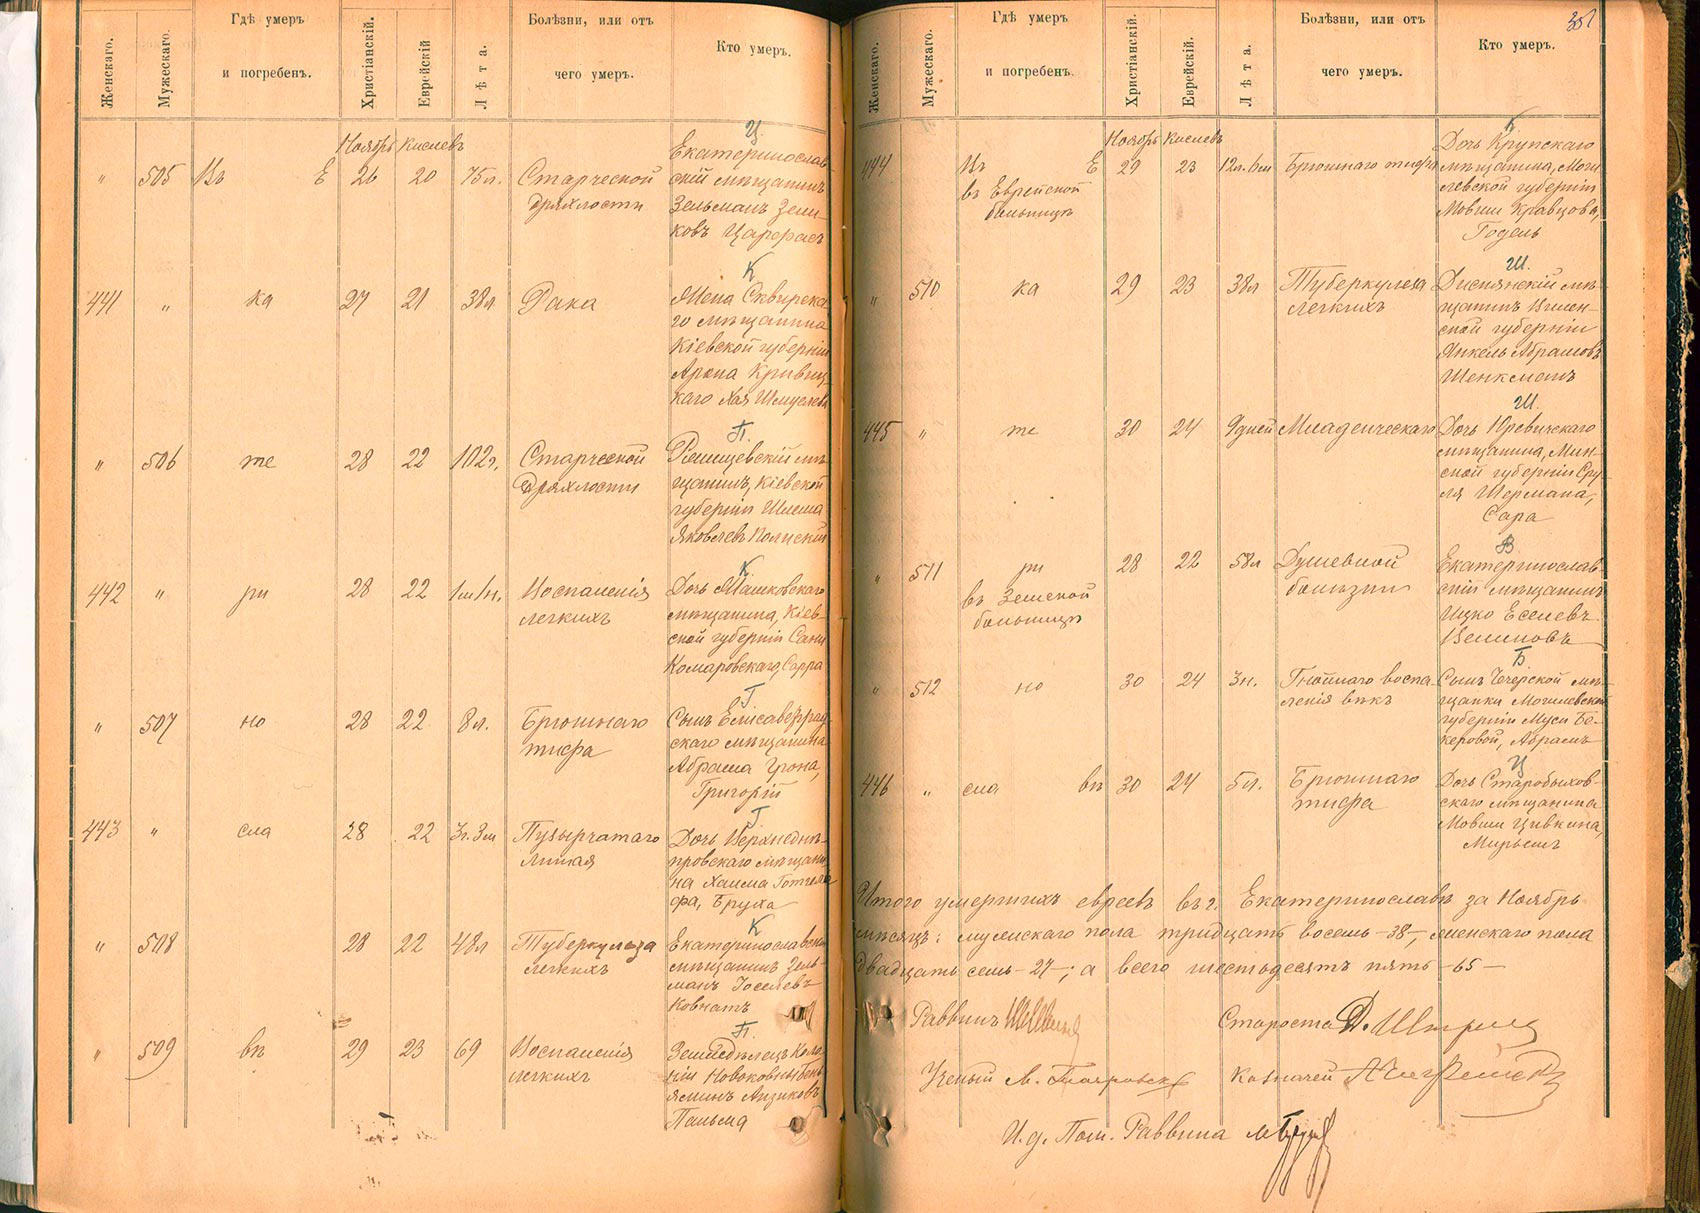 Женскаго.
Мужескаго.
Гдѣ умеръ
и погребенъ.
Христіанскій.
Еврейскій
Лѣта.
Болѣзни, или отъ
чего умеръ.
Кто умеръ.
Ноябрь Кислевъ
Ц.
" 505 Въ Е 26 20 75 л. Старческой
дряхлости
Екатеринослав
скій мѣщанинъ
Зельманъ Зели
ковъ
К
441 " ка 27 21 38 л Рака
Жена Сквирска
го мѣщанина
Кіевской губерніи
Арона Кривиц
каго Хая Шмулева
П.
" 506 те 28 22 102 г. Старческой
Дряхлости
мѣ
щанинъ, Кіевской
губерніи Шлема
Яковлевъ Полискій
К
442 " ри 28 22 1 м 1 н. Воспаленія
легкихъ
Дочь Машковскаго
мѣщанина, Кіев-
ской губерніи
Комаровскаго, Сарра
Г
" 507 но 28 22 8 л. Брюшнаго
тифа
Сынъ Елисаветград
скаго мѣщанина
Абрама Грона,
Григорій
Г
443 " сла 28 22 3 г. 3 м Пузырчатаго
лишая
Дочь Верхнеднѣ-
провскаго мѣщани
на Хаима
фа, Бруха
К
" 508 28 22 48 л Туберкулеза
легкихъ
Екатеринославскій
мѣщанинъ Зель-
манъ Іоселевъ
Ковнатъ
П.
" 509 вѣ 29 23 69 Воспаленія
легкихъ
Земледѣлецъ Коло
ніи
яминъ Айзиковъ
Пальма
Женскаго.
Мужескаго.
Гдѣ умеръ
и погребенъ.
Христіанскій.
Еврейскій.
Лѣта.
Болѣзни, или отъ
чего умеръ.
Кто умеръ.
Ноябрь Кислевъ
К
444 Въ Е 29 23 12 л. 6 м Брюшнаго тифа
въ Еврейской
больницѣ
Дочь Крупскаго
мѣщанина, Моги
левской губерніи
Мовши Кравцова,
Годель
Ш.
" 510 ка 29 23 38 л Туберкулеза
легкихъ
Диснянскій мѣ-
щанинъ Вилен-
ской губерніи
Янкель Абрамовъ
Шенкманъ
Ш.
445 " те 30 24 9 дней Младенческаго
Дочь Юревичскаго
мѣщанина, Мин-
ской губерніи Сру-
ля Шермана,
Сара
В
" 511 ри 28 22 58 л Душевной
болѣзни
въ Земской
больницѣ
Екатеринослав
скій мѣщанинъ
Ицко Еселевъ
Велиновъ
Б
" 512 но 30 24 3 н. Гнойнаго воспа-
ленія вѣкъ
Сынъ Чечерской мѣ-
щанки Могилевской
губерніи Муси Бе-
керовой, Абрамъ
Ц
446 " сла вѣ 30 24 5 л. Брюшнаго
тифа
Дочь Старобыхов-
скаго мѣщанина
Мовши Цивкина,
Мирьямъ
Итого умершихъ евреевъ въ г. Екатеринославѣ за Ноябрь
мѣсяцъ: мужскаго пола тридцать восемь -38-, женскаго пола
двадцать семь -27-; а всего шестьдесятъ пять -65-
Раввинъ Староста Д.
Ученый Казначей
И. д. Пом. Раввина